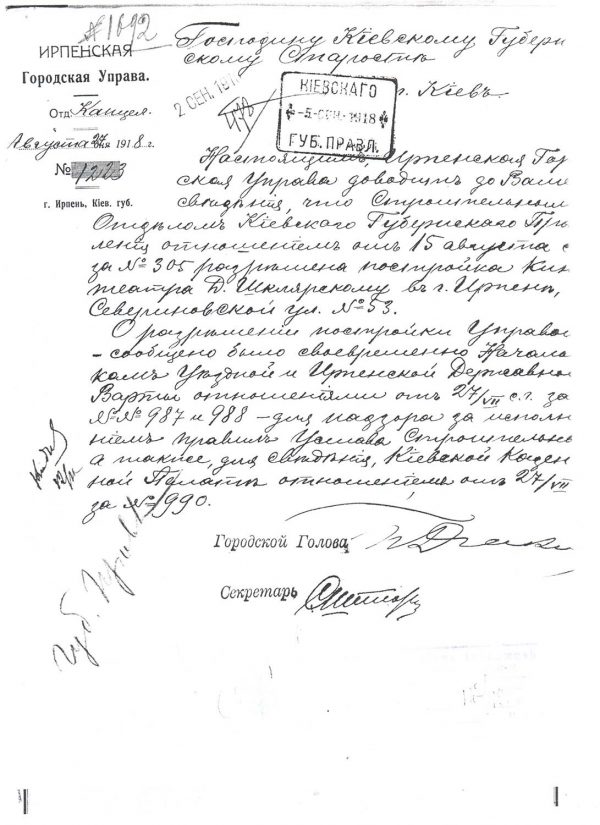 #1692
ИРПЕНСКАЯ
Городская Управа.
Отд. Канцел.
Августа 27 дня 1918 г.
№ 1223
г. Ирпень, Кіев. губ.
Господину Кіевскому Губерн
скому Старостѣ
г. Кіевъ.
2 СЕН. 191
КІЕВСКАГО
-5-СЕН. 1918
ГУБ. ПРАВЛ.
Настоящимъ Ирпенская Гор
ская Управа доводитъ до Ваше
свѣдѣнія, что Строительным
Отдѣломъ Кіевскаго Губернскаго Пра
ленія отношеніемъ отъ 15 августа с
за № 305 разрѣшена постройка Кин
театра Д. Шклярскому въ г. Ирпень,
Севериновской ул. № 53.
О разрѣшеніи постройки Управою
- сообщено было своевременно Начал
камъ Уѣздной и Ирпенской Державно
Варты отношеніями отъ 27/VII с.г. за
№№ 987 и 988 - для надзора за исполн
ніемъ правилъ Устава Строительна
а также, для свѣдѣнія, Кіевской Казен
ной Палатѣ отношеніемъ отъ 27/VII
за № 990.
Городской Голова,
Секретарь
Губ. Правл